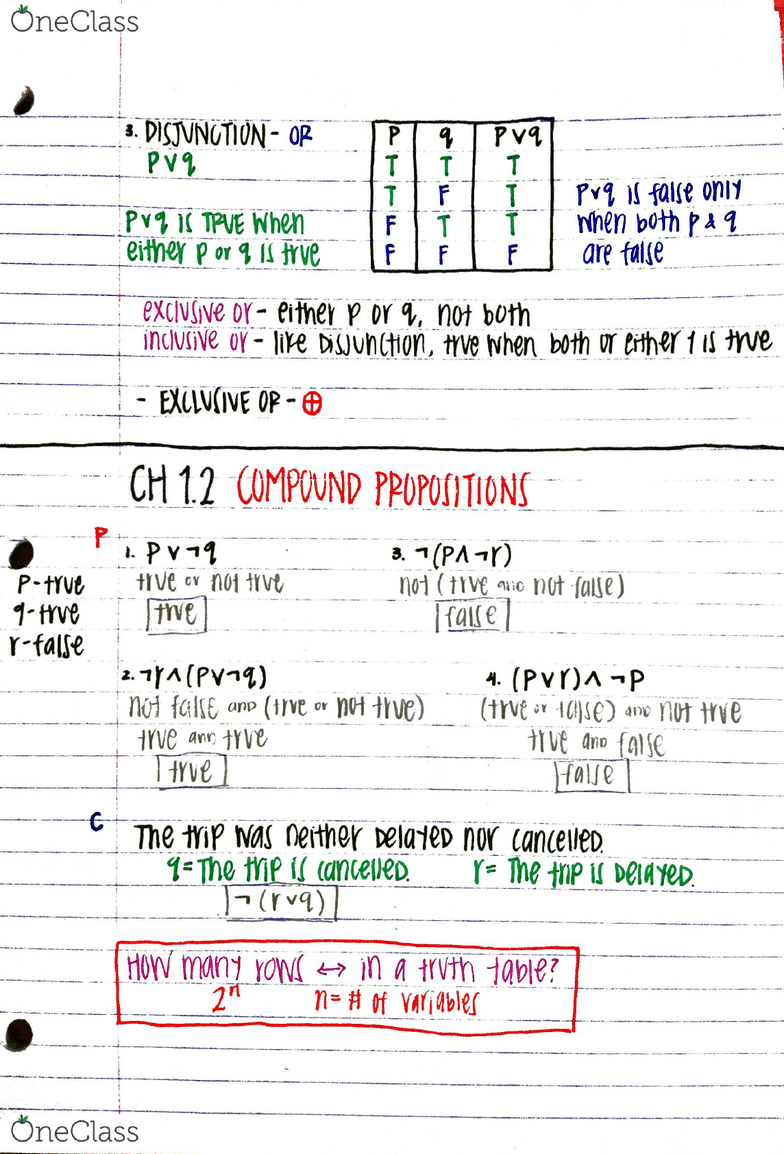 OneClass
3. DISJUNCTION - OR
p v q
p v q is TRUE when
either p or q is true
p q p v q
T T T
T F T
F T T
F F F
p v q is false only
when both p & q
are false
exclusive or - either p or q, not both
inclusive or - like Disjunction, true when both or either 1 is true
- EXCLUSIVE OR - ⊕
CH 1.2 COMPOUND PROPOSITIONS
P
p-true
q-true
r-false
1. p v ¬q
true or not true
true
3. ¬(p ∧ ¬r)
not (true and not false)
false
2. ¬r ∧ (p v ¬q)
not false and (true or not true)
true and true
true
4. (p v r) ∧ ¬p
(true or false) and not true
true and false
false
C
The trip was neither Delayed nor cancelled.
q = The trip is cancelled. r = The trip is Delayed.
¬(r v q)
How many rows ↔ in a truth table?
2ⁿ n = # of variables
OneClass